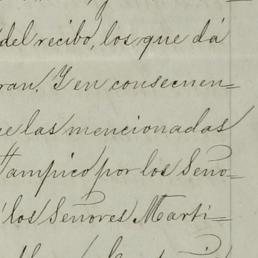 del recibo, los que dá
ran. Y en consecuen=
e las mencionadas
Tampico por los Seño=
los Señores Marti=